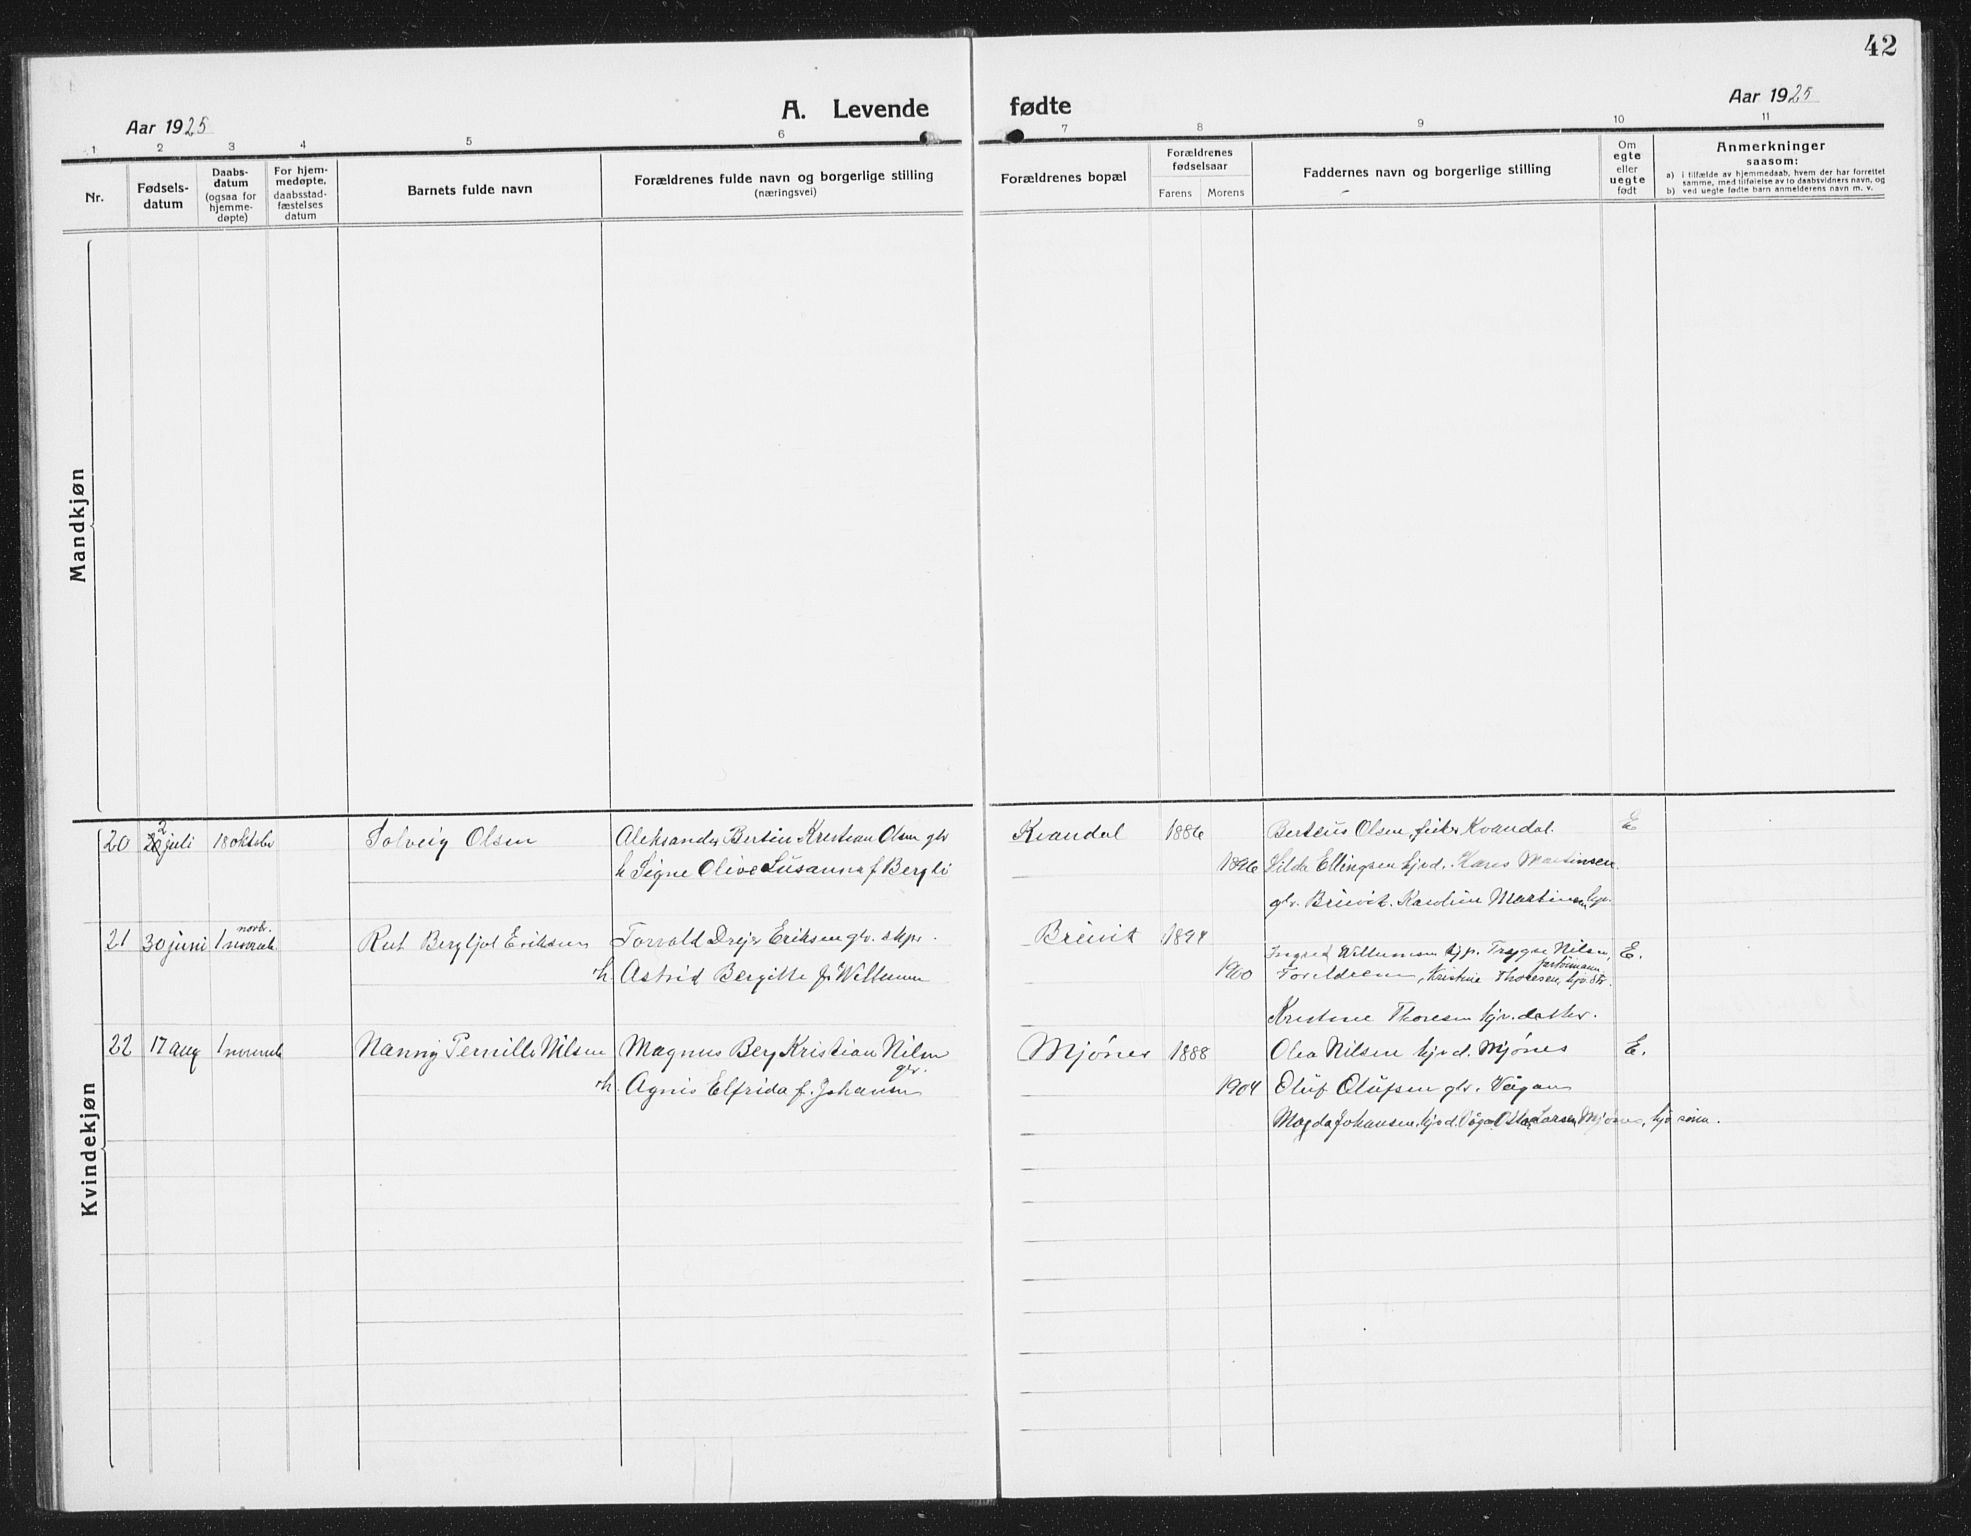 42
Aar 1925
A. Levende fødte
Aar 1925
1 2 3 4 5 6 7 8 9 10 11
Nr.
Fødsels-
datum
Daabs-
datum
(ogsaa for
hjemme-
døpte)
For hjem-
medøpte,
daabsstad-
fæstelses
datum
Barnets fulde navn
Forældrenes fulde navn og borgerlige stilling
(næringsvei)
Forældrenes bopæl
Forældrenes
fødselsaar
Farens Morens
Faddernes navn og borgerlige stilling
Om
egte
eller
uegte
født
Anmerkninger
saasom:
a) i tilfælde av hjemmedaab, hvem der har forrettet
samme, med tilføielse av to daabsvidners navn, og
b) ved uegte fødte barn anmelderens navn m. v.
Mandkjøn
Kvindekjøn
20 2 juli 18 oktobr Solveig Olsen Aleksander Bertin Kristian Olsen gbr Kvandal 1886 Berteus Olsen, fisker Kvandal. E
h Signe Olive Susanna f Bergli 1896 Hilda Ellingsen hjvd. Hans Martinsen
gbr. Breivik. Karoline Martinsen hjv.
novbr.
21 30 juni 1 Rut Bergljot Eriksen Torvald Drejer Eriksen gbr. skpr. Breivik 1894 Ingrid Willumsen hjp. Trygve Nilsen, E.
h. Astrid Bergitte f. Willumsen 1900 Foreldrene, Kristine Thoresen, hjv. str.
Kristine Thoresen hjv. datter.
22 17 aug 1 Nanny Pernille Nilsen Magnus Berg Kristian Nilsen Mjønes 1888 Olea Nilsen hjvd. Mjønes E.
gbr.
h. Agnis Elfrida f. Johansen 1904 Oluf Olufsen gbr. Vågan
Magda Johansen, hjvd. Vågan Larsen Mjønes, hjv sønn.